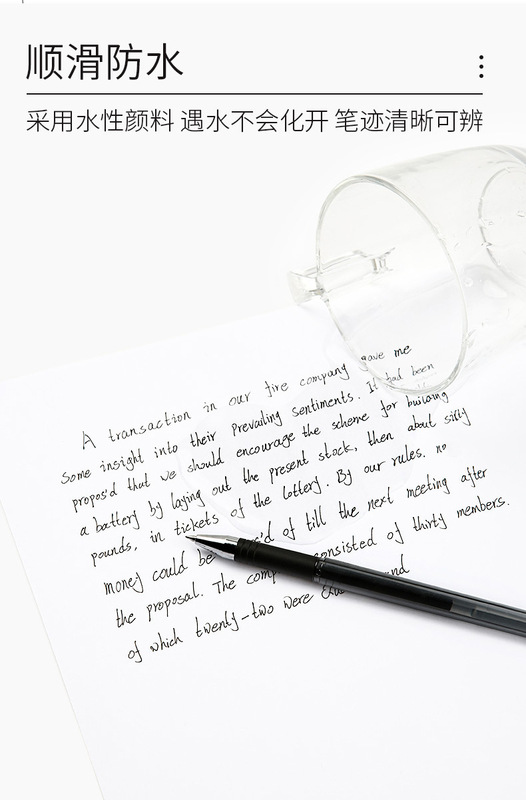 顺滑防水
采用水性颜料 遇水不会化开 笔迹清晰可辨
A transaction in our fire company gave me
Some insight into their prevailing sentiments. It had been
propos'd that we should encourage the scheme for building
a battery by laying out the present stock, then about sixty
pounds, in tickets of the lottery. By our rules. no
money could be 'd of till the next meeting after
the proposal. The comp onsisted of thirty members.
of which twenty-two were